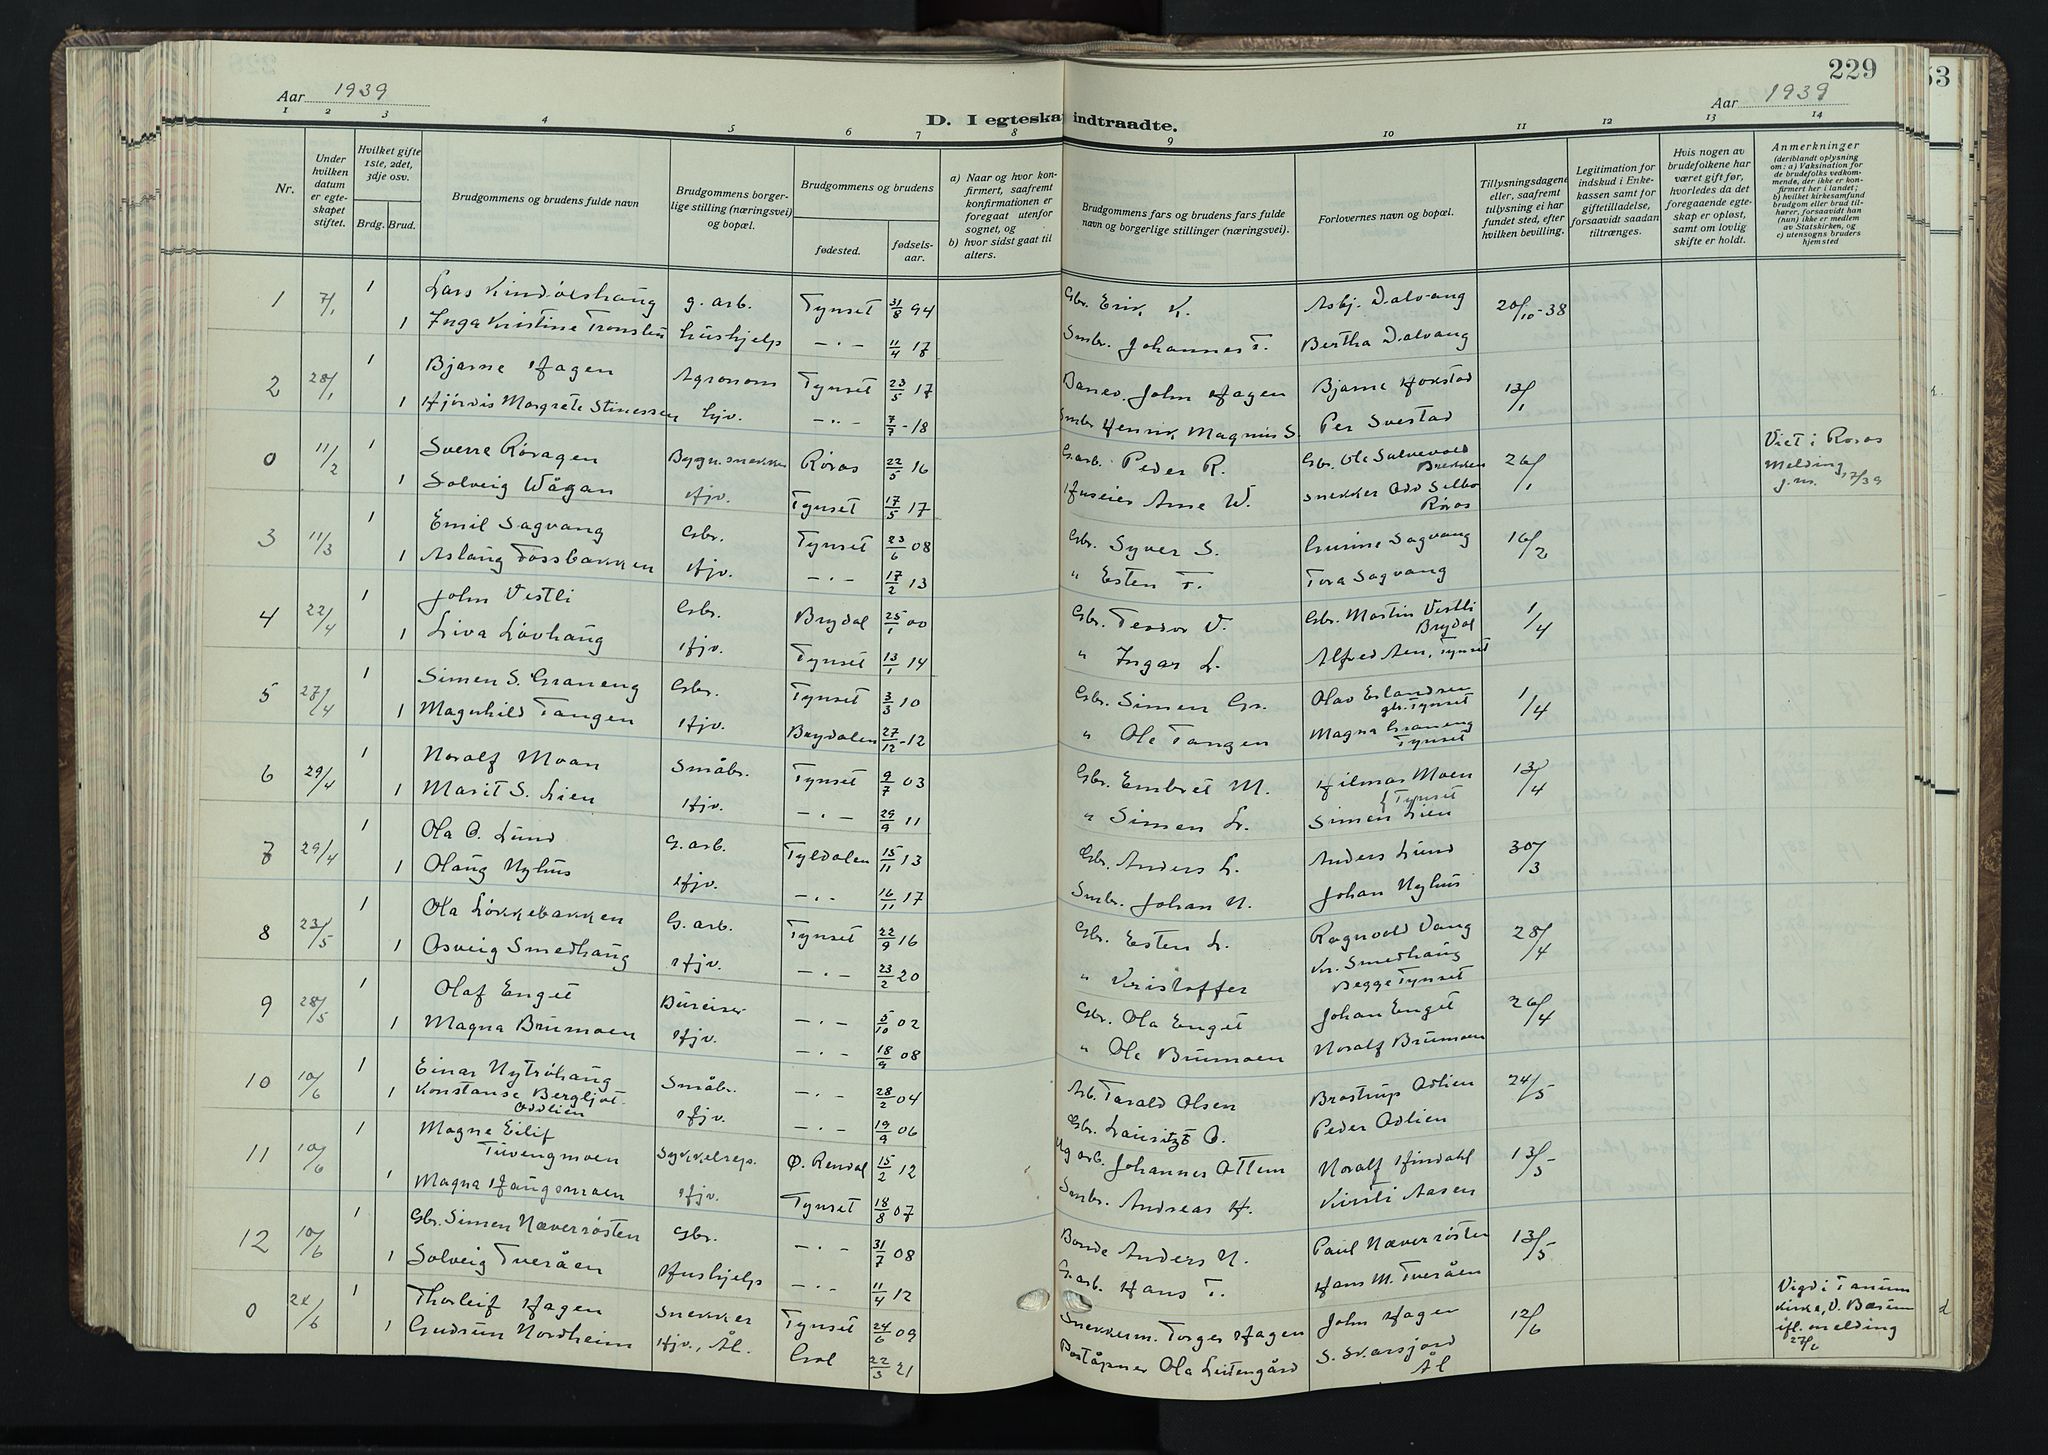 229
53
Aar 1939
Aar 1939
D. I egteskap indtraadte.
1 2 3 4 5 6 7 8 9 10 11 12 13 14
Nr.
Under hvilken datum er egteskapet stiftet.
Hvilket gifte 1ste, 2det, 3dje osv.
Brdg. Brud.
Brudgommens og brudens fulde navn
Brudgommens borgerlige stilling (næringsvei) og bopæl.
Brudgommens og brudens
fødested.
fødselsaar.
a) Naar og hvor konfirmert, saafremt konfirmationen er foregaat utenfor sognet, og
b) hvor sidst gaat til alters.
Brudgommens fars og brudens fars fulde navn og borgerlige stillinger (næringsvei).
Forlovernes navn og bopæl.
Tillysningsdagene eller, saafremt tillysning ei har fundet sted, efter hvilken bevilling.
Legitimation for indskud i Enkekassen samt for giftetilladelse, forsaavidt saadan tiltrænges.
Hvis nogen av brudefolkene har været gift før, hvorledes da det foregaaende egteskap er opløst, samt om lovlig skifte er holdt.
Anmerkninger
(deriblandt oplysning om: a) Vaksination for de brudefolks vedkommende, der ikke er konfirmert her i landet; b) hvilket kirkesamfund brudgom eller brud tilhører, forsaavidt han (hun) ikke er medlem av Statskirken, og c) utensogns bruders hjemsted
1 7/1 1 Lars Kindølshaug g. arb. Tynset 31/8 94 Gbr. Erik K. Asbj. Dalvang 20/10-38
1 Inga Kristine Tronslien Hushjelp -"- 11/4 17 Smbr. Johannes T. Bertha Dalvang
2 28/1 1 Bjarne Hagen Agronom Tynset 23/5 17 Banev. John Hagen Bjarne Hokstad 13/1
1 Hjørdis Margrete Stinessen hjv. -"- 7/7-18 Smbr Henrik Magnus S. Per Svestad
0 11/2 1 Sverre Røragen Bygn.snekker Røros 22/5 16 G.arb. Peder R. Gbr. Ole Sulvevold Brekken 26/1 Viet i Røros
1 Solveig Wågan Hjv. Tynset 17/5 17 Huseier Arne W. snekker Odv Selbo Røros Melding j.nr. 17/39
3 11/3 1 Emil Sagvang Gbr. Tynset 23/6 08 Gbr. Syver S. Gurine Sagvang 16/2
1 Aslaug Fossbakken Hjv. -"- 17/2 13 " Esten F. Tora Sagvang
4 22/4 1 John Vestli Gbr. Brydal 25/1 00 Gbr. Teodor V. Gbr. Martin Vestli Brydal 1/4
1 Liva Løvhaug Hjv. Tynset 13/1 14 " Ingar L. Alfred Aen, Tynset
5 27/4 1 Simen S. Graneng Gbr. Tynset 3/3 10 Gbr. Simen Gr. Olav Erlandsen gbr. Tynset 1/4
1 Magnhild Tangen Hjv. Brydalen 27/12-12 " Ole Tangen Magna Graneng Tynset
6 29/4 1 Noralf Moan Småbr. Tynset 9/7 03 Gbr. Embret M. Hilmar Moen 13/4
1 Marit S. Lien Hjv. -"- 29/9 11 " Simen L. Simen Lien } Tynset
7 29/4 1 Ola O. Lund G.arb. Tyldalen 15/11 13 Gbr. Anders L. Anders Lund 30/3
1 Olaug Nyhus Hjv. -"- 16/11 17 Smbr. Johan N. Johan Nyhus
8 23/5 1 Ola Løkkebakken G. arb. Tynset 22/9 16 Gbr. Esten L. Ragnvald Vang 28/4
1 Osveig Smedhaug Hjv. -"- 23/2 20 " Kristoffer Kr. Smedhaug Begge Tynset
9 28/5 1 Olaf Enget Bureiser -"- 5/10 02 Gbr. Ola Enget Johan Enget 26/4
1 Magna Brumoen Hjv. -"- 18/9 08 " Ole Brumoen Noralf Brumoen
10 10/6 1 Einar Nytrøhaug Småbr. -"- 28/2 04 Arb. Tarald Olsen Brostrup Odlien 24/5
1 Konstanse Bergljot Oddlien Hjv. -"- 19/9 06 Gbr. Lauritz O. Peder Odlien
11 10/6 1 Magne Eilif Tuvengmoen Sykkelrep. Ø. Rendal 15/2 12 Johannes Ottem Noralf Hindahl 13/5
1 Magna Haugsmoen Hjv. Tynset 18/8 07 Smbr. Andreas H. Kirsti Aasen
12 10/6 1 Gbr. Simen Næverrøsten Gbr. -"- 31/7 08 Bonde Anders N. Paul Næverrøsten 13/5
1 Solveig Tveråen Hushjelp -"- 11/4 12 G.arb. Hans T. Hans M. Tveråen
0 24/6 1 Thorleif Hagen Snekker Tynset 24/6 09 Snekkerm. Torger Hagen John Hagen 12/6 Vigd i Tanum kirke, V. Bærum
1 Gudrun Nordheim Hjv., Ål. Gol 22/3 21 Poståpner Ola Leitengård S. Svarsjord Ål ifl. melding 27/6